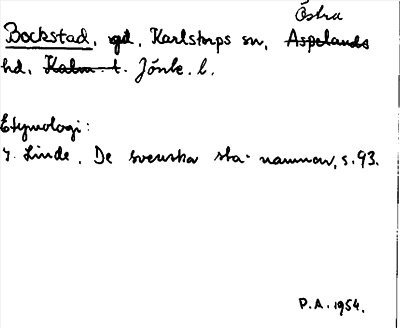 Östra
Bockstad, gd, Karlstorps sn, Aspelands
hd, Kalm. l. Jönk. l.
Etymologi:
G. Linde, De svenska sta-namnen, s. 93.
P.A. 1954.